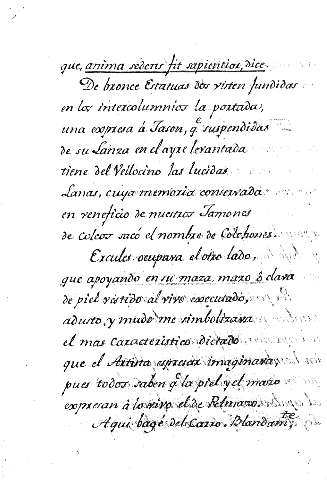 que, anima sedens fit sapientior, dice.
De bronce Estatuas dos visten fundidas
en los intercolumnios la portada,
una expresa á Jason, q.e suspendidas
de su Lanza en el ayre levantada
tiene del Vellocino las lucidas
Lanas, cuya memoria conservada
en veneficio de nuestros Jamones
de Colcos sacó el nombre de Colchones.
Ercules ocupava el otro lado,
que apoyando en su maza, mazo ò clava
de piel vestido al vivo executado,
adusto, y mudo me simbolizava
el mas caracteristico dictado
que el Artista espresar imaginava;
pues todos saben q.e la piel y el mazo
expresan â lo vivo el de Pelmazo.
Aqui bagé del Carro. Blandam.te